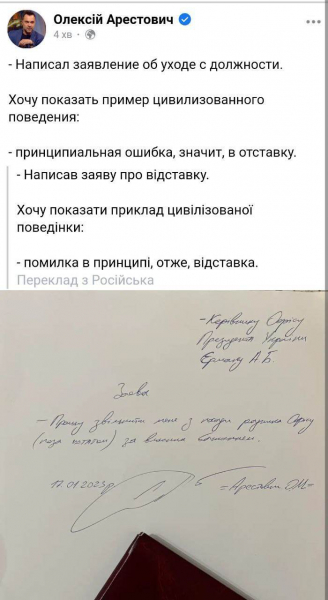 Олексій Арестович
4 хв ·
- Написал заявление об уходе с должности.
Хочу показать пример цивилизованного
поведения:
- принципиальная ошибка, значит, в отставку.
- Написав заяву про відставку.
Хочу показати приклад цивілізованої
поведінки:
- помилка в принципі, отже, відставка.
Переклад з Російська
- Керівнику Офісу
Президента України
Єрмаку А.Б.
Заява
- Прошу звільнити мене з посади радника Офісу
(поза штатом) за власним бажанням.
17.01.2023 р.
=Арестович О.М=